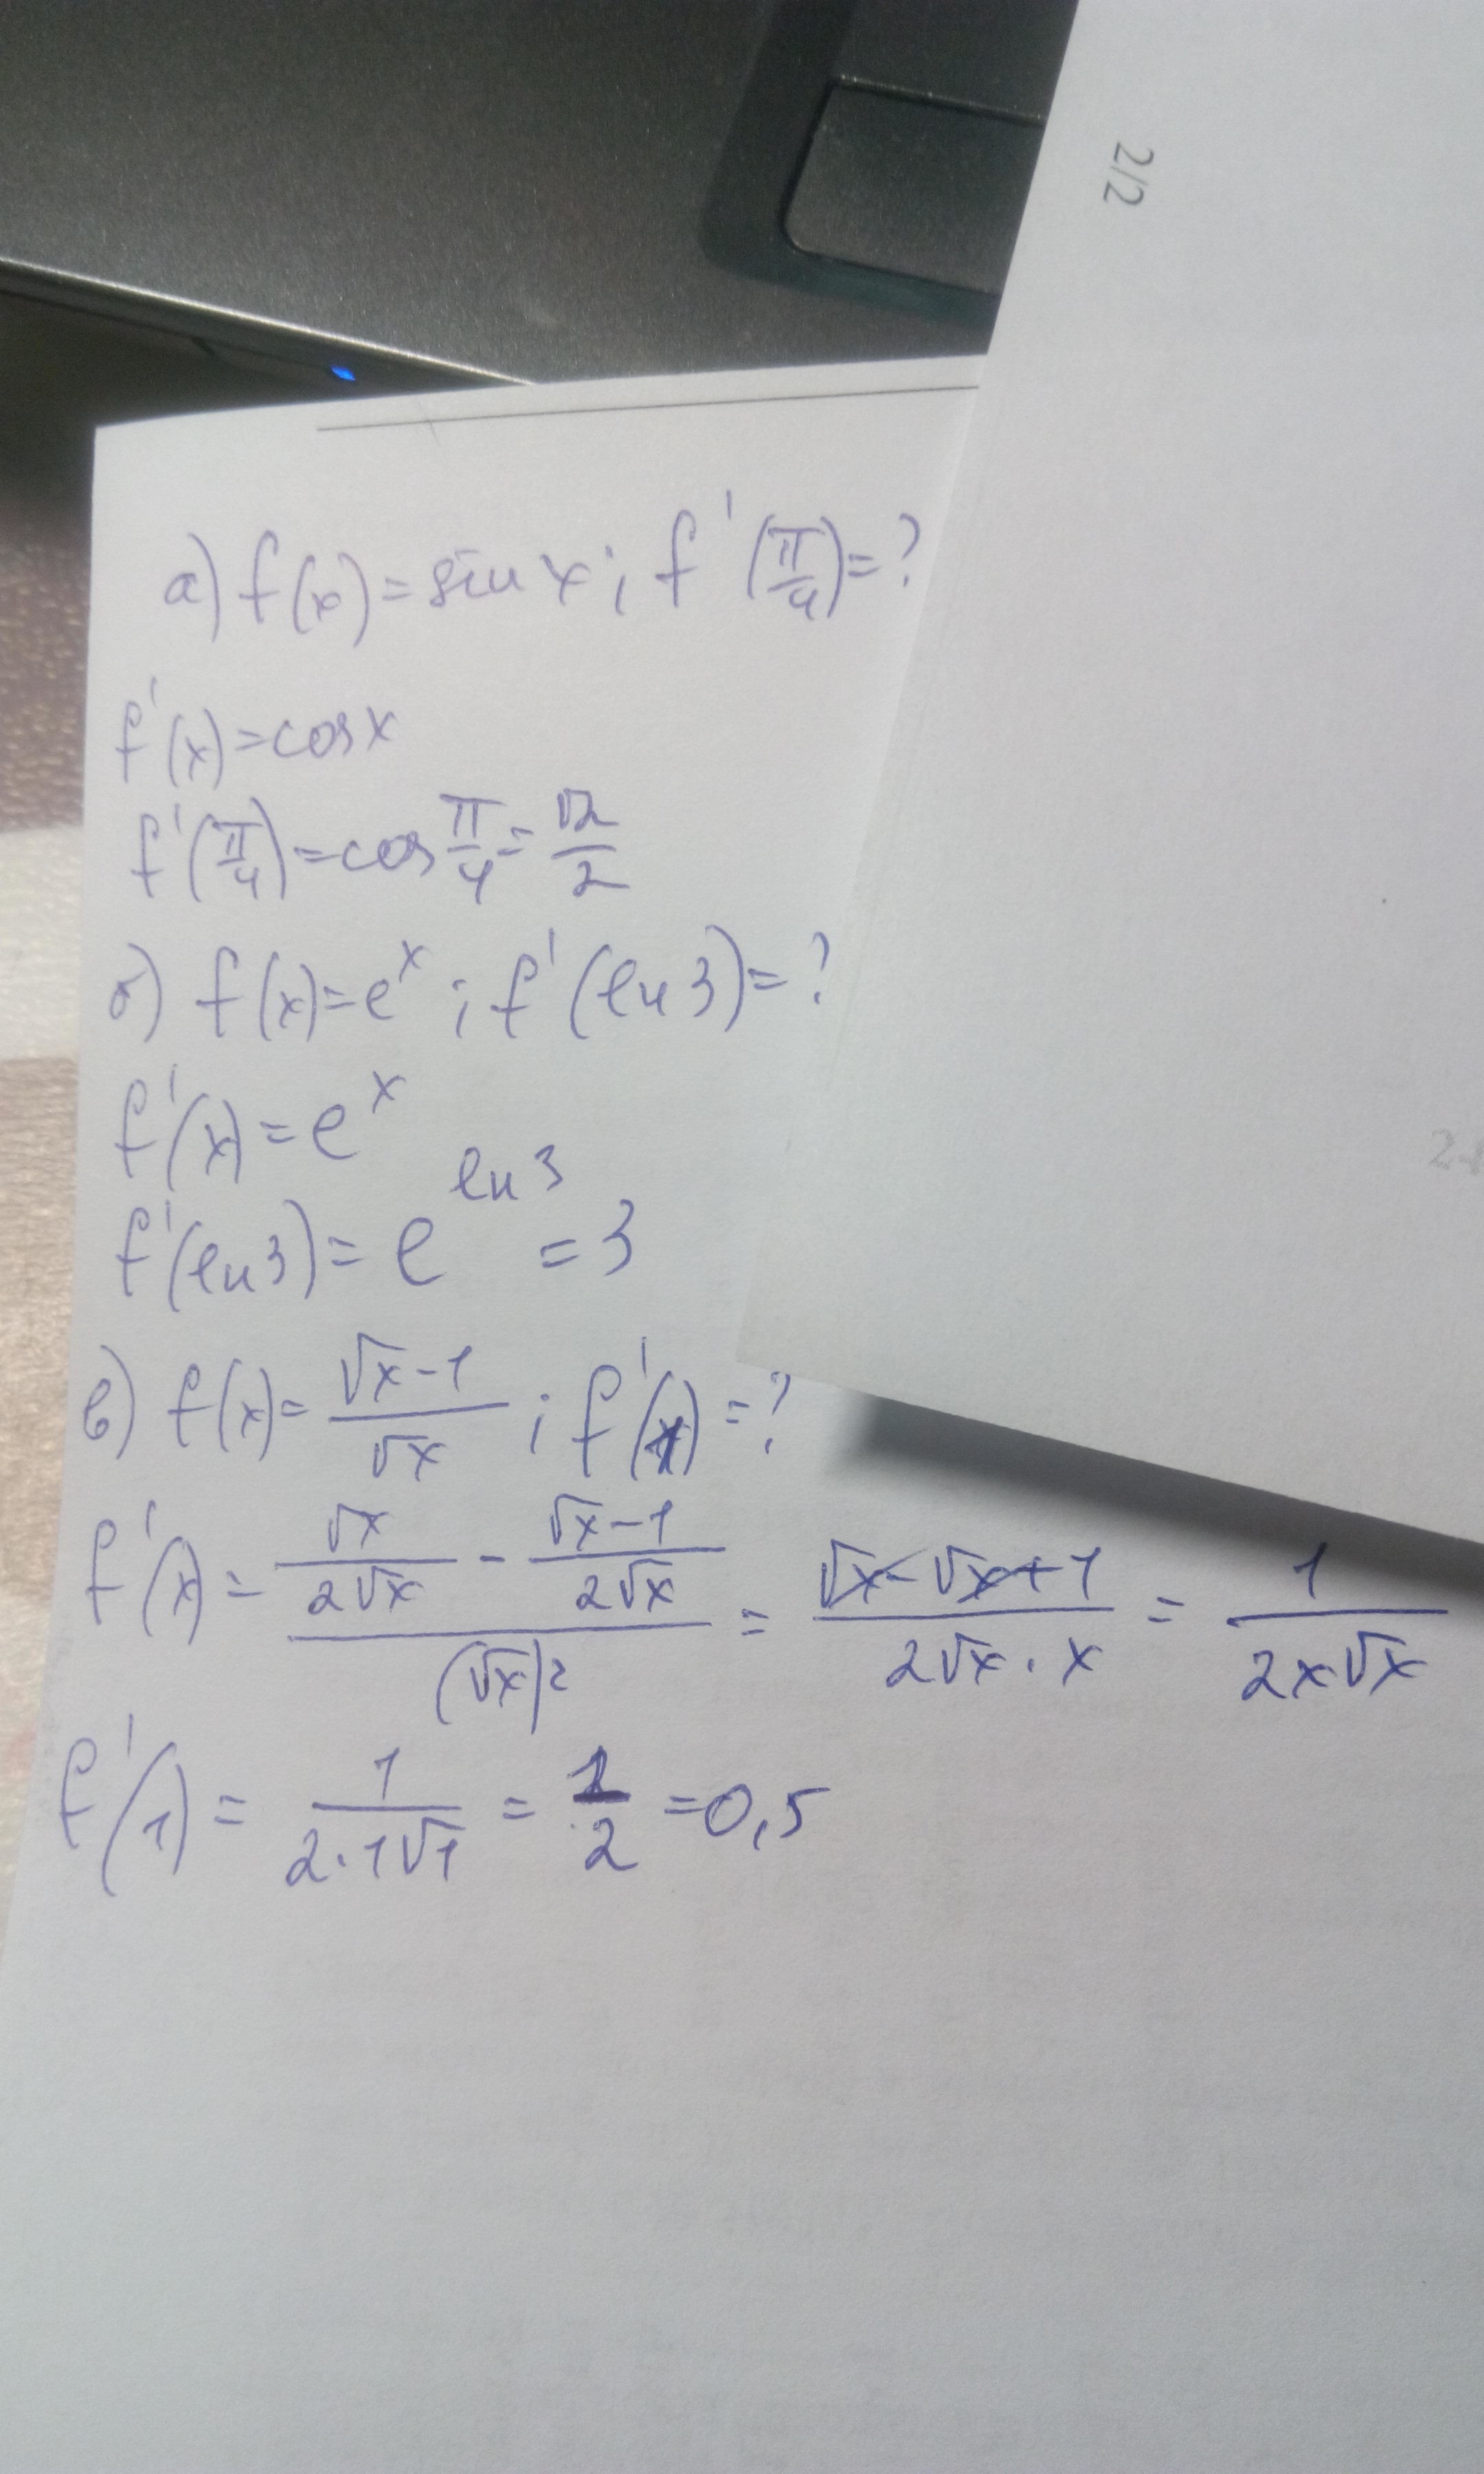 2/2
а) f(x) = sin x ; f'(π/4) = ?
f'(x) = cos x
f'(π/4) = cos π/4 = √2/2
б) f(x) = e^x ; f'(ln 3) = ?
f'(x) = e^x
f'(ln 3) = e^(ln 3) = 3
в) f(x) = (√x - 1)/√x ; f'(1) = ?
f'(x) = (√x/(2√x) - (√x - 1)/(2√x))/(√x)² = (√x - √x + 1)/(2√x · x) = 1/(2x√x)
f'(1) = 1/(2·1√1) = 1/2 = 0,5